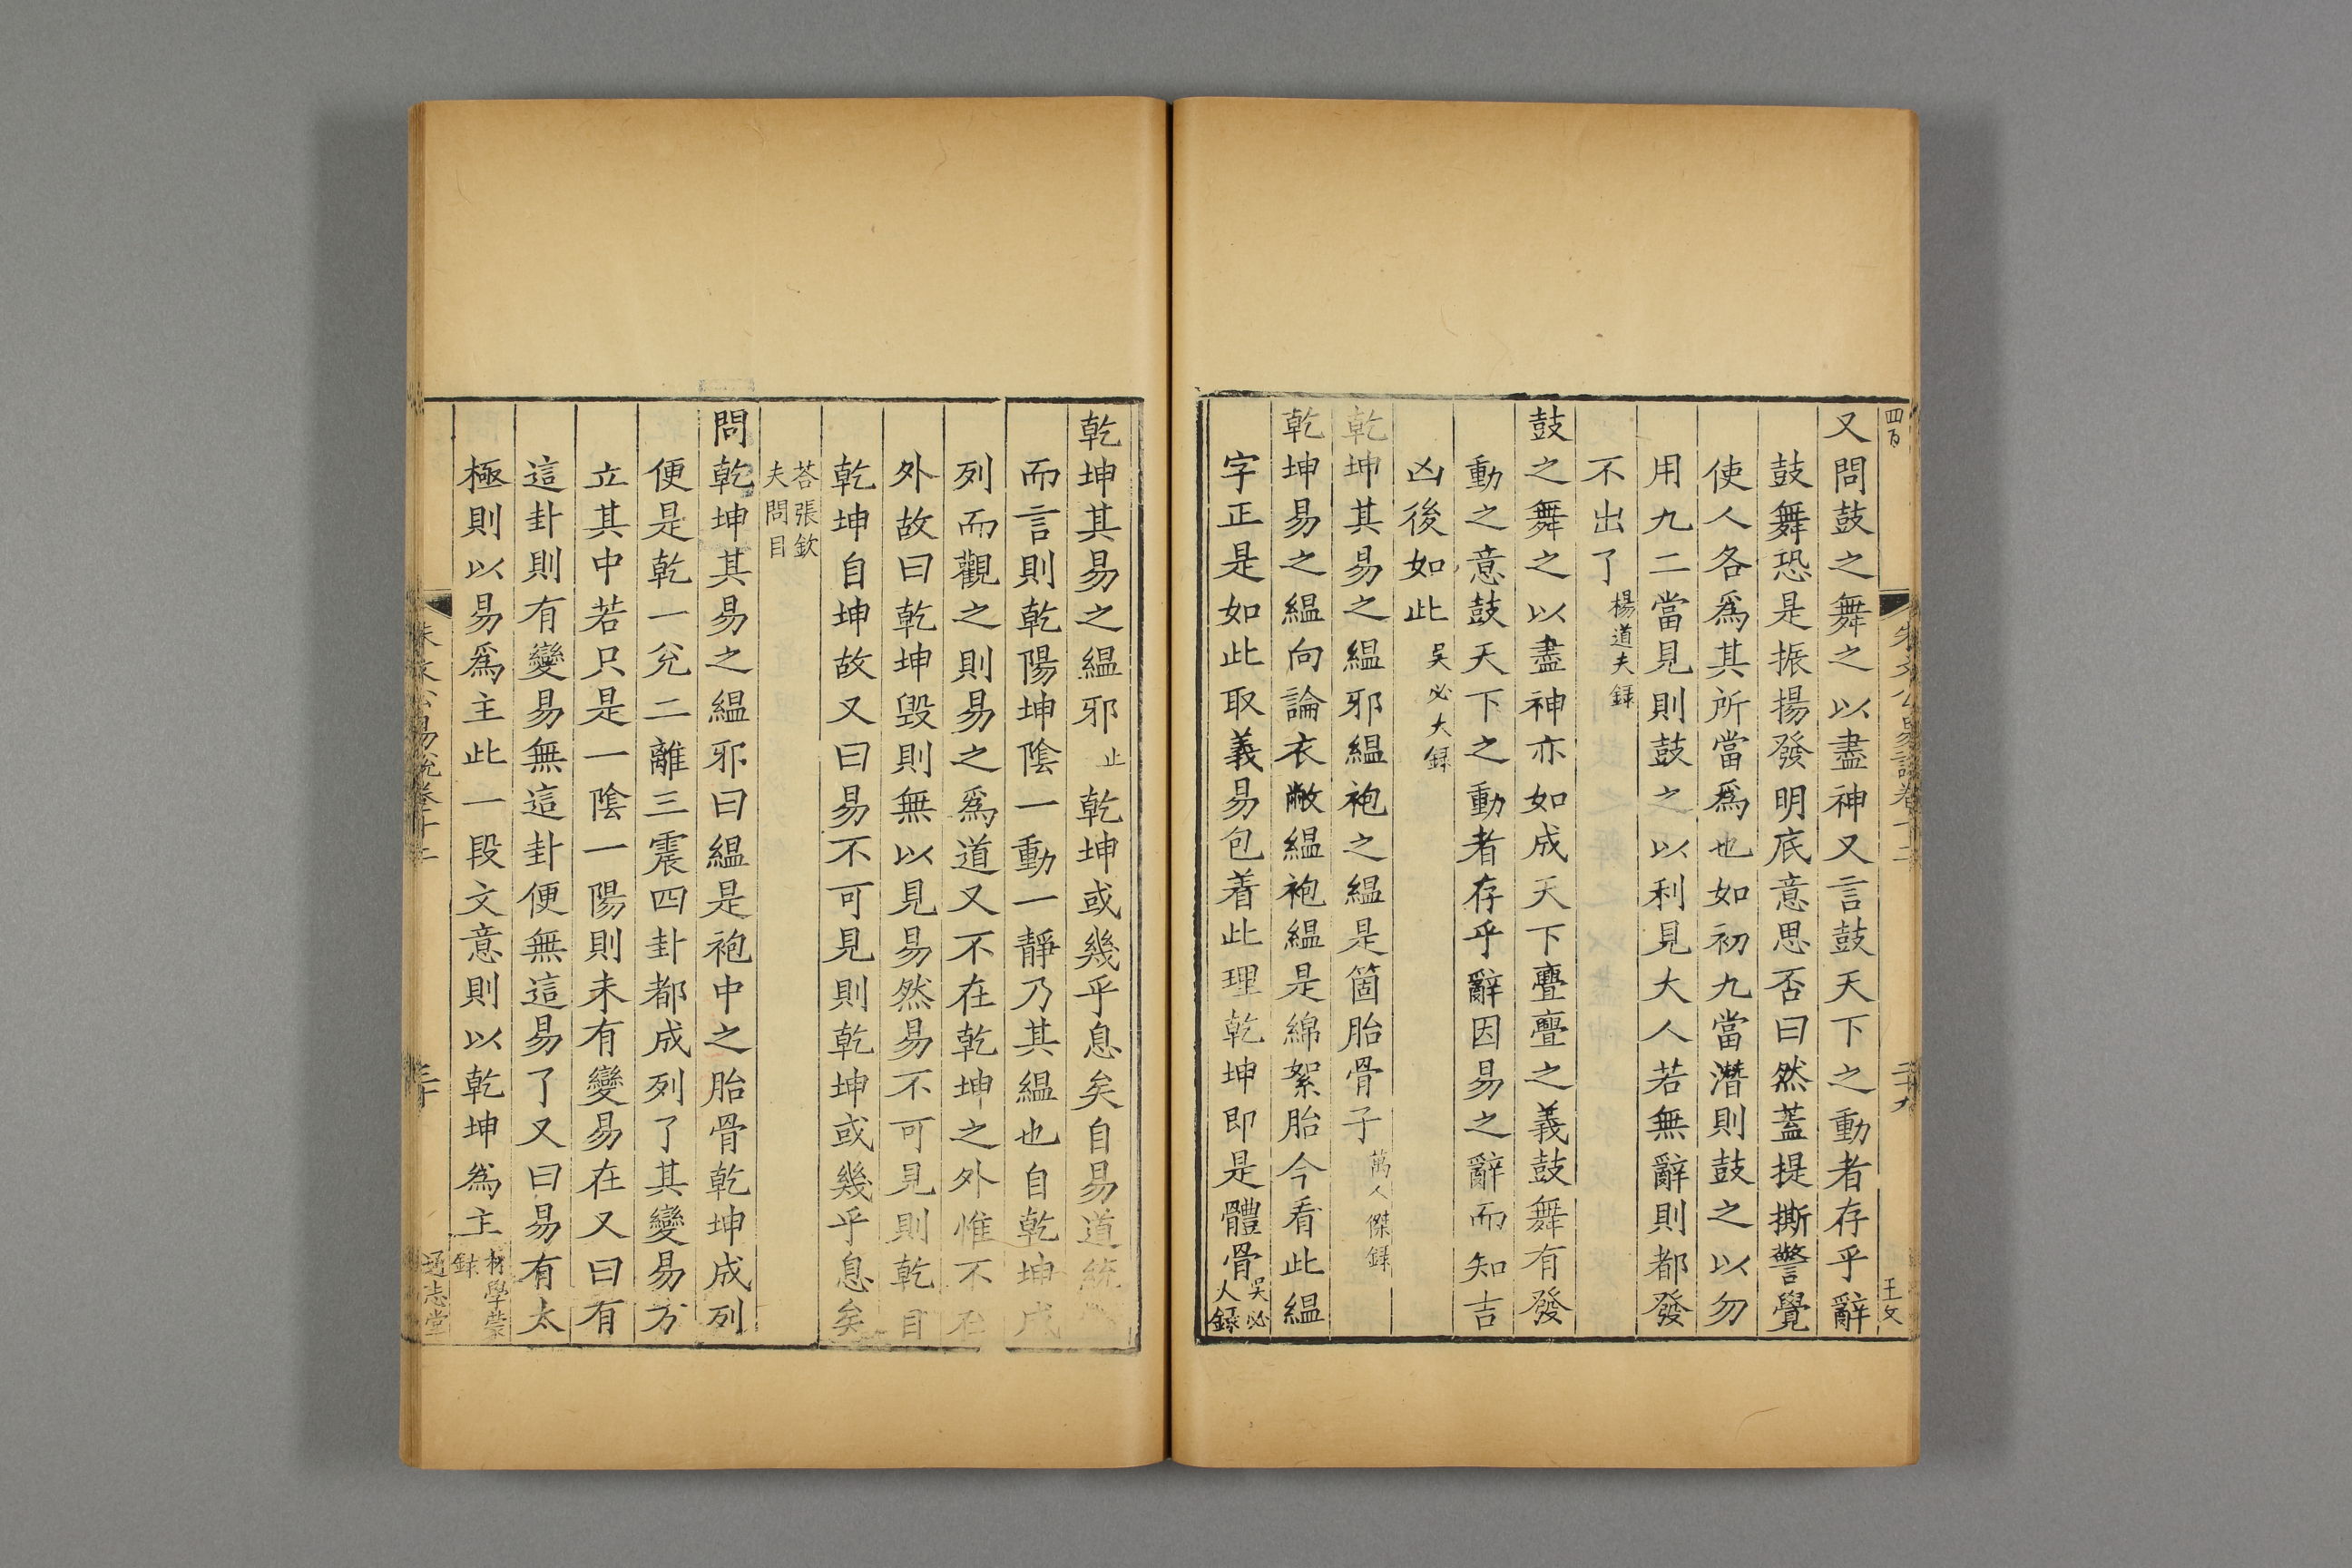 四百
朱文公易說卷十二
二十九
王文
又問鼓之舞之以盡神又言鼓天下之動者存乎辭
鼓舞恐是振揚發明底意思否曰然蓋提撕警覺
使人各爲其所當爲也如初九當潛則鼓之以勿
用九二當見則鼓之以利見大人若無辭則都發
不出了楊道夫録
鼓之舞之以盡神亦如成天下亹亹之義鼓舞有發
動之意鼓天下之動者存乎辭因易之辭而知吉
凶後如此吳必大録
乾坤其易之緼邪緼袍之緼是箇胎骨子萬人傑録
乾坤易之緼向論衣敝緼袍緼是綿絮胎今看此緼
字正是如此取義易包着此理乾坤即是體骨吳必人録
乾坤其易之緼邪止乾坤或幾乎息矣自易道統
而言則乾陽坤陰一動一靜乃其緼也自乾坤成
列而觀之則易之爲道又不在乾坤之外惟不在
外故曰乾坤毀則無以見易然易不可見則乾自
乾坤自坤故又曰易不可見則乾坤或幾乎息矣
荅張欽
夫問目
問乾坤其易之緼邪曰緼是袍中之胎骨乾坤成列
便是乾一兊二離三震四卦都成列了其變易方
立其中若只是一陰一陽則未有變易在又曰有
這卦則有變易無這卦便無這易了又曰易有太
極則以易爲主此一段文意則以乾坤爲主林學蒙録
朱文公易說卷十二
三十
通志堂